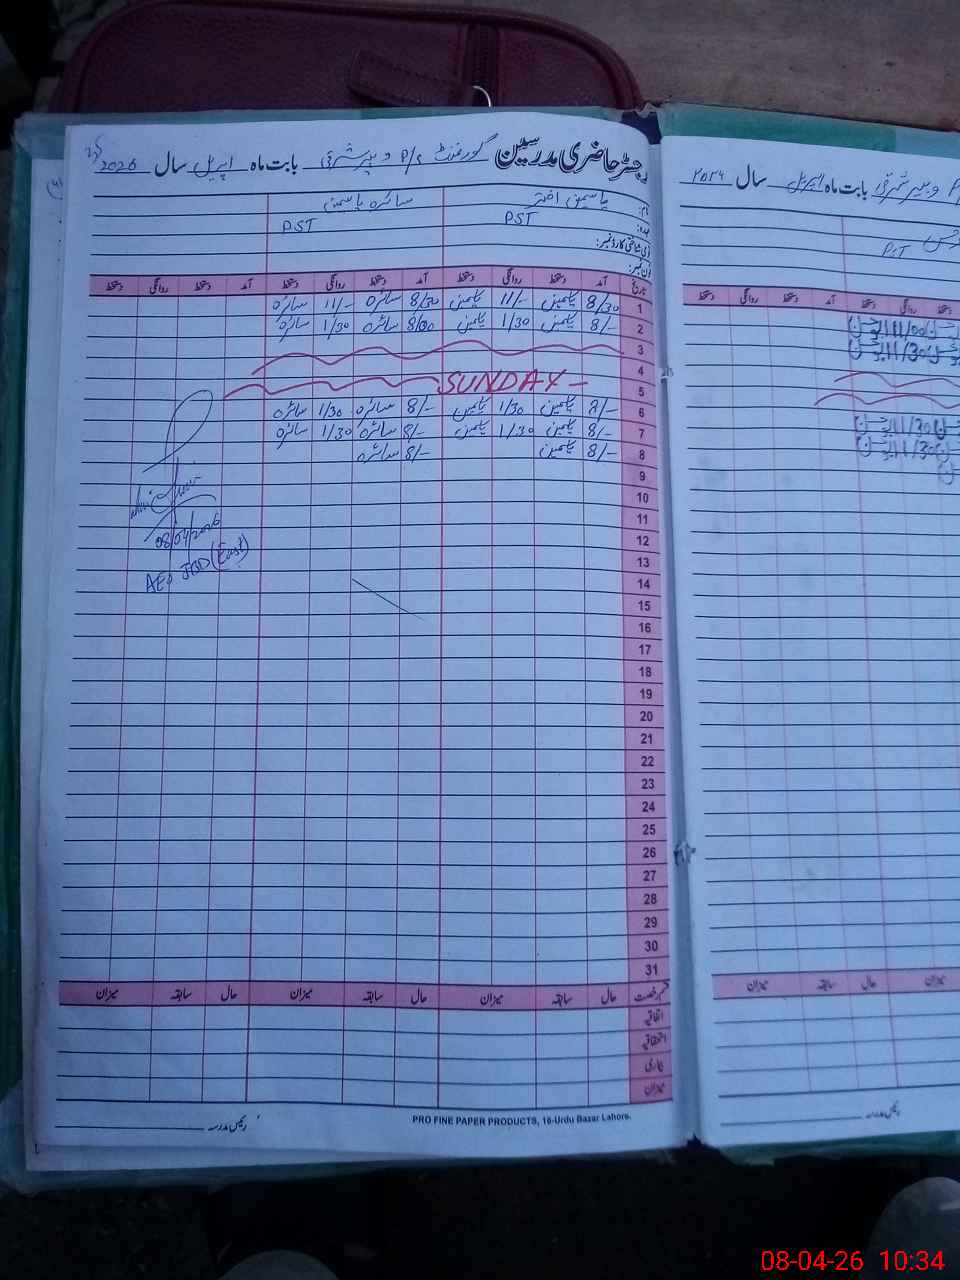 رجسٹر حاضری مدرسین گورنمنٹ P/S و سیر شرقی بابت ماہ اپریل سال 2026
نام: یاسمین اختر سائرہ یاسمین
عہدہ: PST PST
قومی شناختی کارڈ نمبر:
فون نمبر:
تاریخ آمد دستخط روانگی دستخط آمد دستخط روانگی دستخط آمد دستخط روانگی دستخط
1 8/30 یاسمین 11/- یاسمین 8/30 سائرہ 11/- سائرہ
2 8/- یاسمین 1/30 یاسمین 8/30 سائرہ 1/30 سائرہ
3
4
5 SUNDAY
6 8/- یاسمین 1/30 یاسمین 8/- سائرہ 1/30 سائرہ
7 8/- یاسمین 1/30 یاسمین 8/- سائرہ 1/30 سائرہ
8 8/- یاسمین 8/- سائرہ
9
10
11
12
13
14
15
16
17
18
19
20
21
22
23
24
25
26
27
28
29
30
31
08/04/2026
AEO JBD (East)
قسم رخصت حال سابقہ میزان حال سابقہ میزان حال سابقہ میزان
اتفاقیہ
استحقاقیہ
بیماری
میزان
رئیس مدرسہ
PRO FINE PAPER PRODUCTS, 16-Urdu Bazar Lahore.
بابت ماہ اپریل سال 2026
PST
آمد دستخط روانگی دستخط
11/00
11/30
11/30
11/30
حال سابقہ میزان
رئیس مدرسہ
08-04-26 10:34